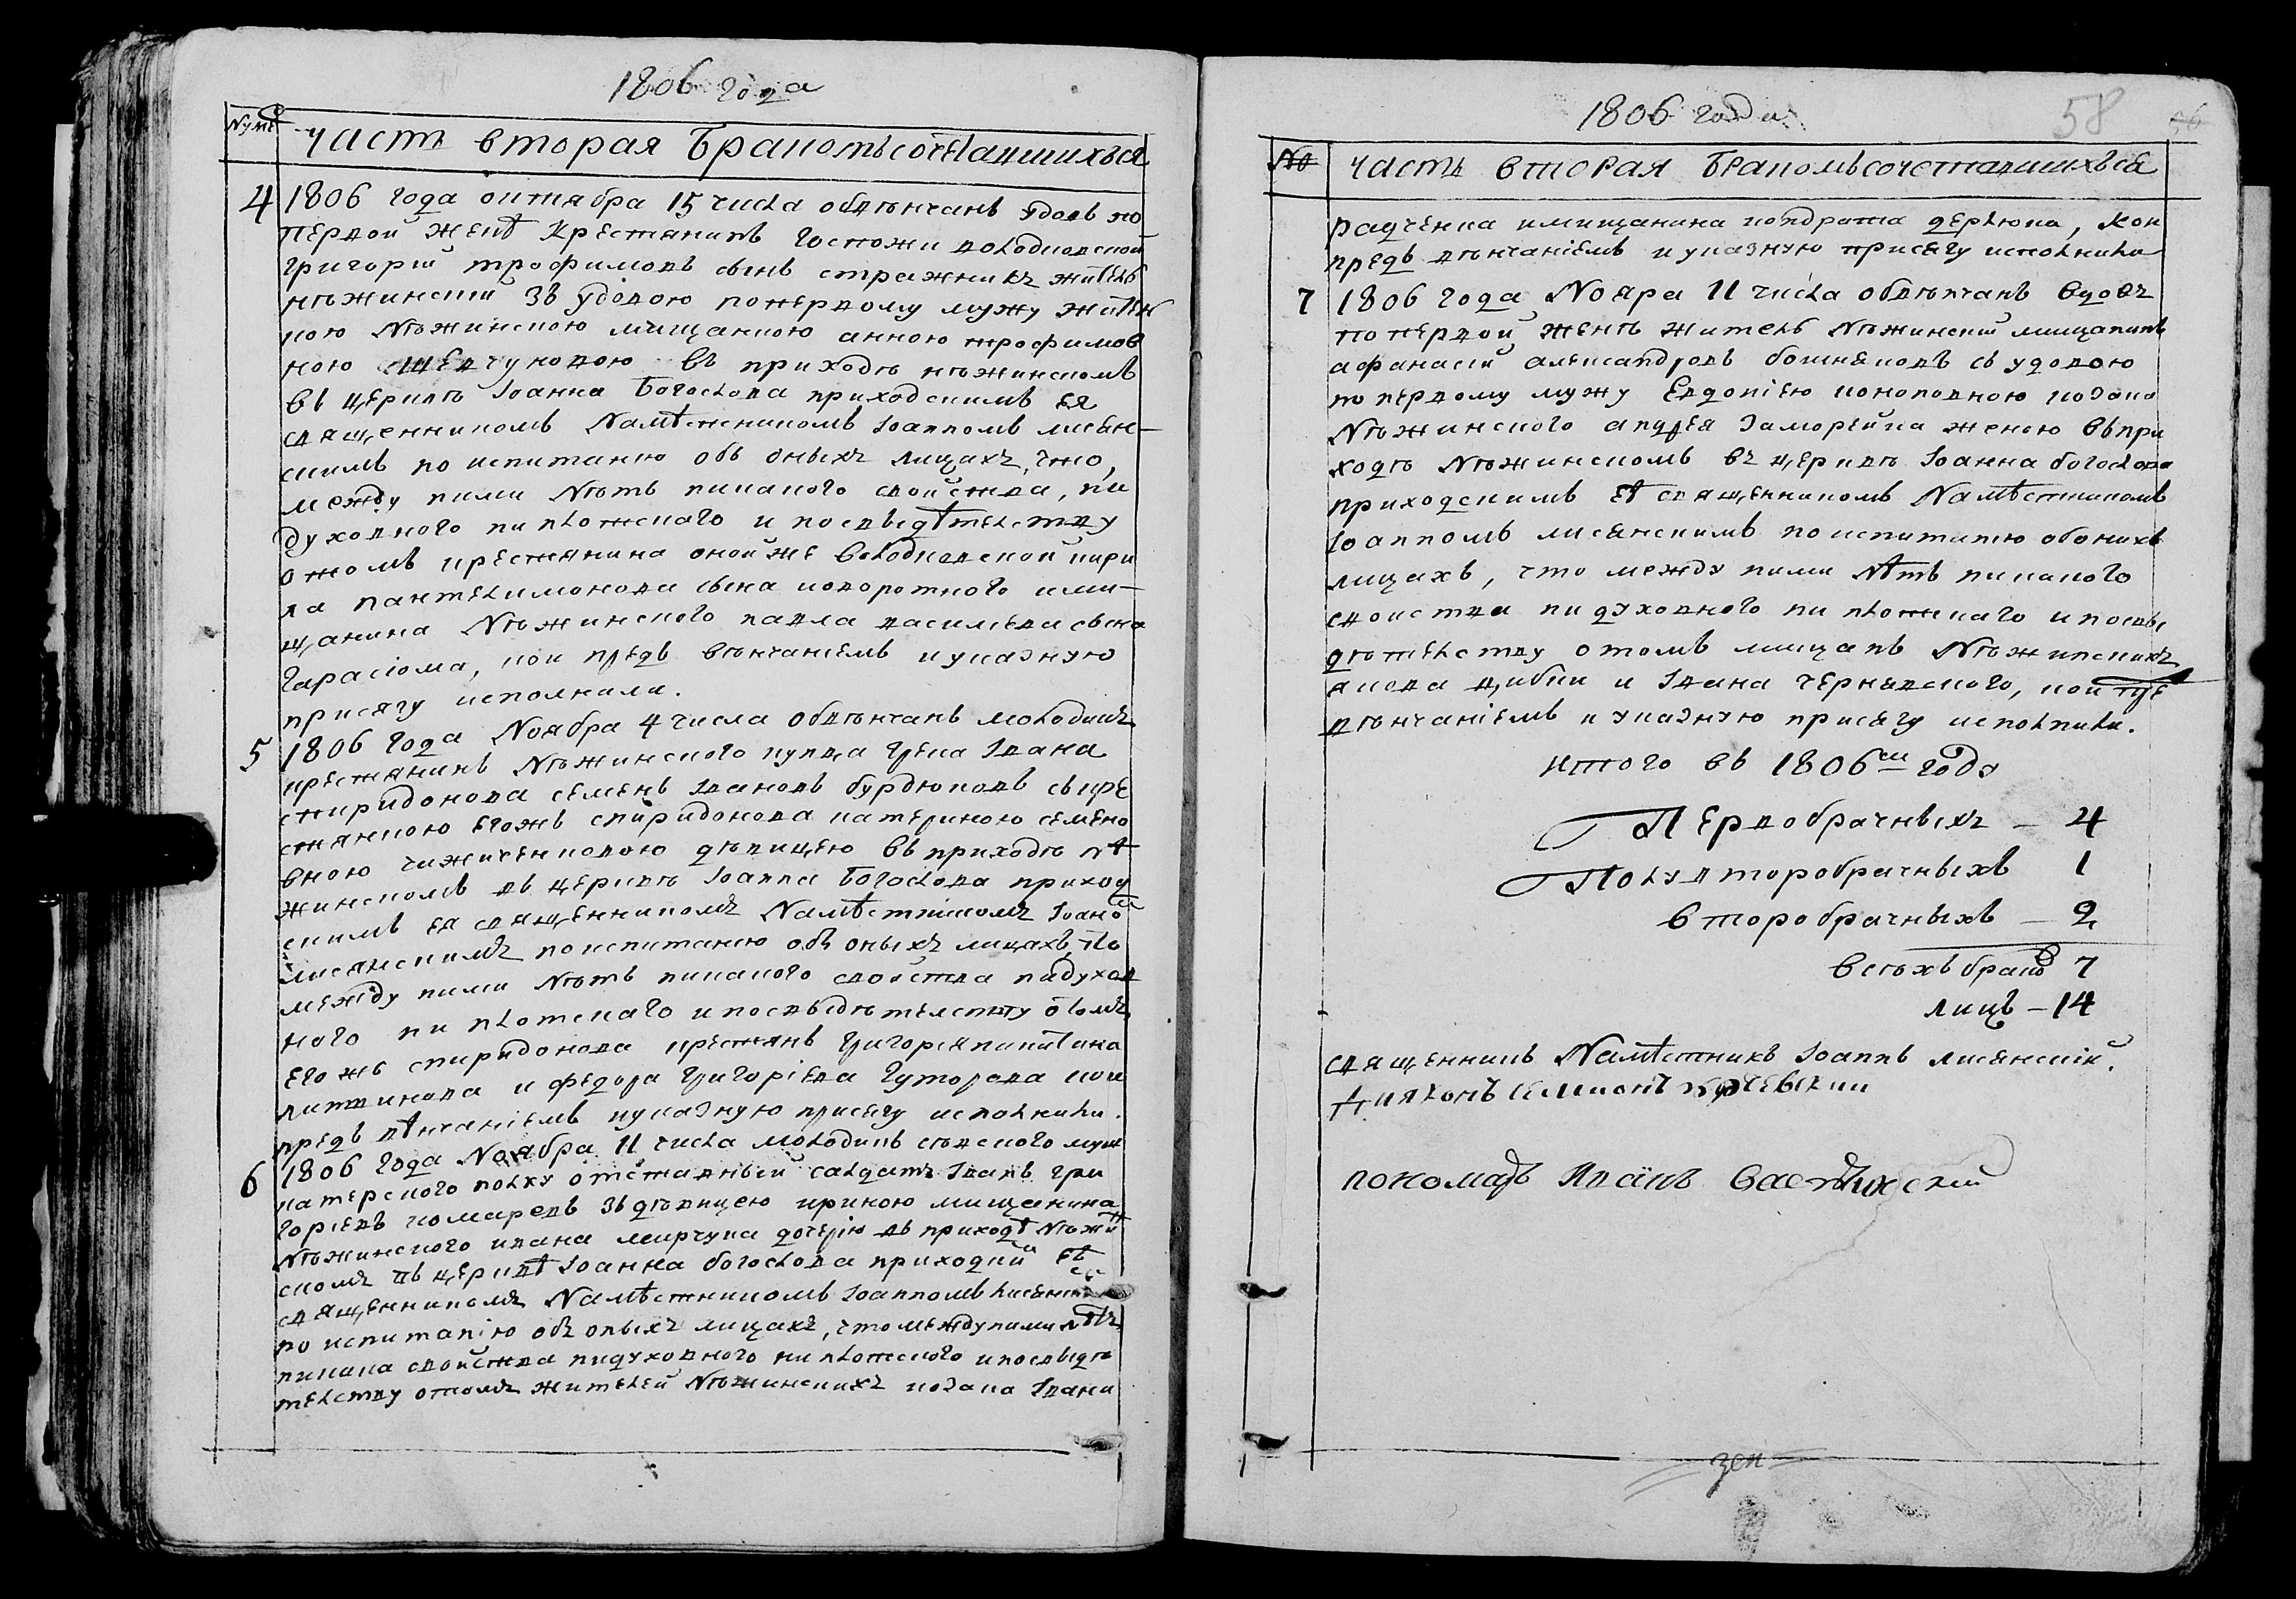 1806 года
Нуме
часть вторая бракомъ сочетавшихъся
4
1806 года октября 15 числа обвѣнчанъ вдовъ по
первой женѣ крестянинъ госпожи володковской
григорій трофимовъ сынъ стражникъ житель
нѣжинскій зъ удовою по первому мужу житель
кою нѣжинскою мищанкою анною трофимов
ною въ приходѣ нѣжинскомъ
въ церквѣ Іоанна Богослова приходскимъ ея
священникомъ Намѣстникомъ Іоанномъ лисян-
скимъ по испитанію объ оныхъ лицахъ, что
между ними Нѣтъ никакого свойства, ни
духовного ни плотского и посвыдѣтелству
о томъ крестянина оной же володковской кири
ла пантелимонова сына коворотного и ми-
щанина Нѣжинского павла василіева сына
Гарасіома, кои предъ вѣнчаніемъ и указную
присягу исполнили.
5
1806 года Ноября 4 числа обвѣнчанъ молодикъ
крестянинъ Нѣжинского купца грека Ивана
спиридонова семенъ Ивановъ бурдюковъ съ кре
стянкою егожъ спиридонова катериною семено
вною чижиченковою дѣвицею въ приходѣ нѣ
жинскомъ въ церквѣ Іоанна Богослова приход
скимъ ея священникомъ Намѣстникомъ Іоано
лисянскимъ по испитанію объ оныхъ лицахъ, что
между ними Нѣтъ никакого свойства ни духов
ного ни плотскаго и посвыдѣтелству о томъ
его жъ спиридонова крестянъ Григорія никитина
литвинова и федора Григоріева Гуторова кои
предъ вѣнчаніемъ и указную присягу исполнили.
6
1806 года Ноября 11 числа молодикъ сѣвского муш
катерского полку отставный салдатъ Иванъ гри
горіевъ комаревъ зъ дѣвицею ириною мищанина
Нѣжинского ивана марчука дочерію въ приходѣ Нѣжи
скомъ въ церквѣ Іоанна богослова приходски еѣ
священникомъ Намѣстникомъ Іоанномъ лисянски
по испитанію объ оныхъ лицахъ, что между ними нѣтъ
никака свойства ни духовного ни плотского и посвыдѣ
телству о томъ жителей Нѣжинскихъ козака Ивана
1806 года
58
56
№
часть вторая бракомъ сочетавшихъся
радченка и мищанина кондрата дерюка, кои
предъ вѣнчаніемъ и указную присягу исполнили
7
1806 года Ноября 11 числа обвѣнчанъ вдовъ
по первой женѣ житель Нѣжинскій мищанинъ
афанасій александровъ бошняковъ съ удовою
по первому мужу Евдокіею кононовною козака
Нѣжинского андрея Заморейка женою въ при
ходѣ Нѣжинскомъ въ церквѣ Іоанна богослова
приходскимъ еѣ священникомъ Намѣстникомъ
Іоанномъ лисянскимъ по испитанію объ онихъ
лицахъ, что между ними Нѣтъ никакого
свойства ни духовного ни плотскаго и посвы
дѣтелству о томъ мищанъ Нѣжинскихъ
якова цибки и Ивана чернявского, кои пре
вѣнчаніемъ и указную присягу исполнили.
итого въ 1806мъ году
Первобрачныхъ – 4
Полувторобрачныхъ 1
второбрачныхъ – 2
всѣхъ браковъ 7
лицъ – 14
священникъ Намѣстникъ Іоаннъ лисянскій.
Диякон
пономарь Иванъ